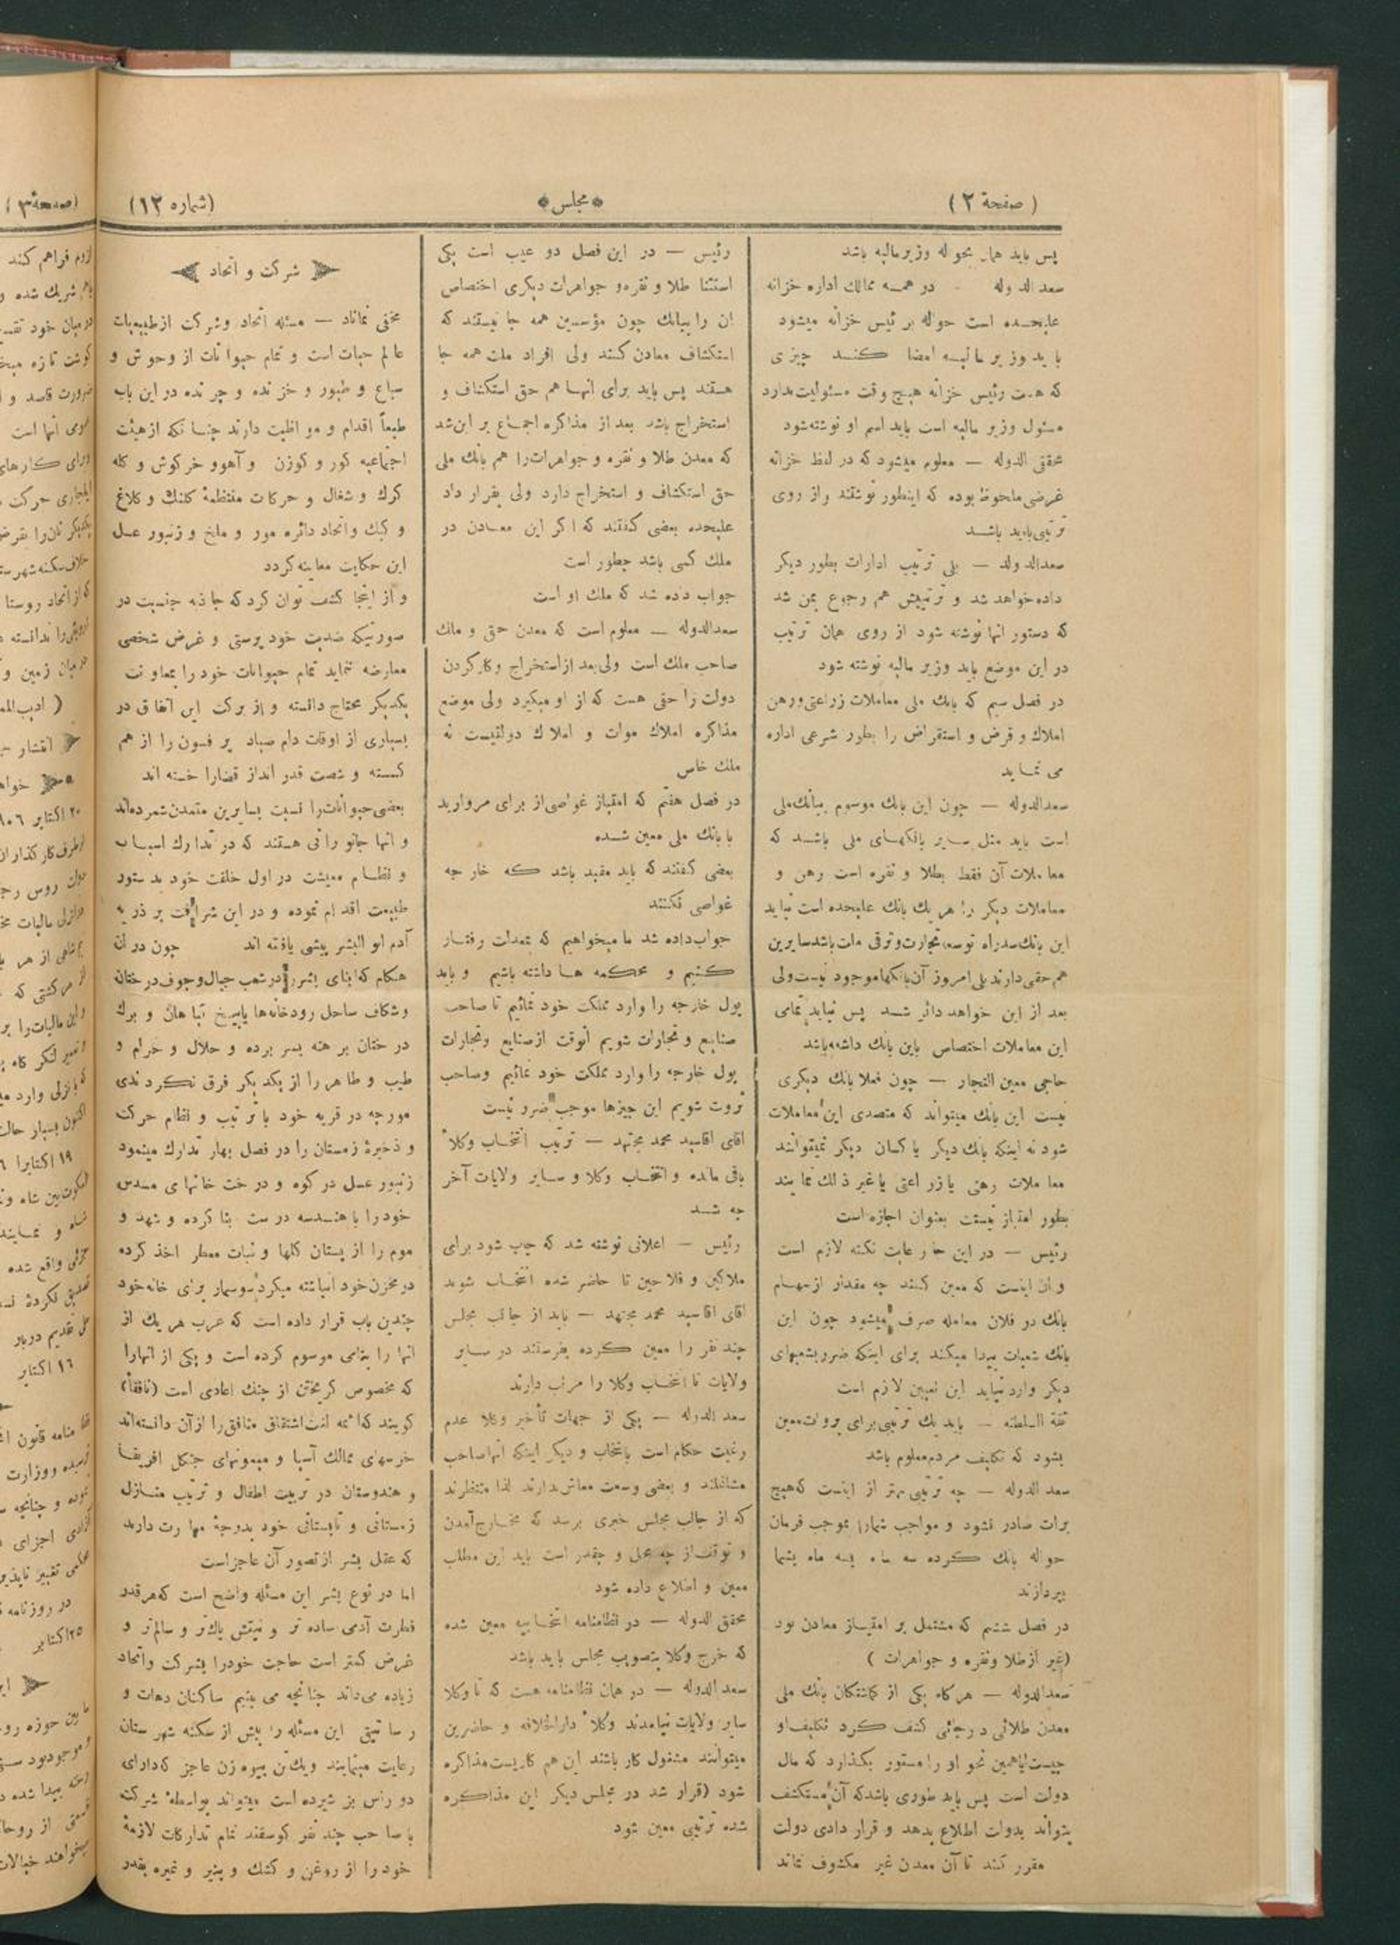 ( صفحهٔ ۲ )
* مجلس *
(شماره ۱۲)
پس باید همان بحواله وزیر مالیه باشد
سعد الدوله - در همه ممالك اداره خزانه
علیحده است حواله برئیس خزانه میشود
باید وزیر مالیه امضا کند چیزی
که هست رئیس خزانه هیچ وقت مسئولیت ندارد
مسئول وزیر مالیه است باید اسم او نوشته شود
محقق الدوله — معلوم میشود که در لفظ خزانه
غرضی ملحوظ بوده که اینطور نوشتند و از روی
ترتیبی باید باشد
سعد الدوله — بلی ترتیب ادارات بطور دیگر
داده خواهد شد و ترتیبش هم رجوع بمن شد
که دستور آنها نوشته شود از روی همان ترتیب
در این موضع باید وزیر مالیه نوشته شود
در فصل سیم که بانك ملی معاملات زراعتی و رهن
املاك و قرض و استقراض را بطور شرعی اداره
می نماید
سعدالدوله — چون این بانك موسوم ببانك ملی
است باید مثل سایر بانکهای ملی باشد که
معاملات آن فقط بطلا و نقره است رهن و
معاملات دیگر را هر یك بانك علیحده است نباید
این بانك سد راه توسعه تجارت و ترقی ملت باشد سایرین
هم حقی دارند بلی امروز آن بانکها موجود نیست ولی
بعد از این خواهد دائر شد پس نباید تمامی
این معاملات اختصاص باین بانك داشته باشد
حاجی معین التجار — چون فعلا بانك دیگری
نیست این بانك میتواند که متصدی این معاملات
شود نه اینکه بانك دیگر یا کسان دیگر نمیتوانند
معاملات رهنی یا زراعتی یا غیر ذلك نمایند
بطور امتیاز نیست بعنوان اجازه است
رئیس — در این جا رعایت نکته لازم است
و آن اینست که معین کنند چه مقدار از سهام
بانك در فلان معامله صرف میشود چون این
بانك شعبات پیدا میکند برای اینکه ضرر بشعبهای
دیگر وارد نیاید این تعیین لازم است
ثقة السلطنه — باید یك ترتیبی برای بروات معین
بشود که تکلیف مردم معلوم باشد
سعد الدوله — چه ترتیبی بهتر از اینست که هیچ
برات صادر نشود و مواجب شما را بموجب فرمان
حواله بانك کرده سه ماه بسه ماه بشما
بپردازند
در فصل ششم که مشتمل بر امتیاز معادن بود
(غیر از طلا و نقره و جواهرات )
سعدالدوله — هرگاه یکی از گماشتگان بانك ملی
معدن طلائی در جائی کشف کرد تکلیف او
چیست یا همین نحو او را مستور بگذارد که مال
دولت است پس باید طوری باشد که آن مستکشف
بتواند بدولت اطلاع بدهد و قرار دادی دولت
مقرر کند تا آن معدن غیر مکشوف نماند
رئیس — در این فصل دو عیب است یکی
استثنا طلا و نقره و جواهرات دیگری اختصاص
آن را ببانك چون مؤسسین همه جا نیستند که
استکشاف معادن کنند ولی افراد ملت همه جا
هستند پس باید برای آنها هم حق استکشاف و
استخراج باشد بعد از مذاکره اجماع بر این شد
که معدن طلا و نقره و جواهرات را هم بانك ملی
حق استکشاف و استخراج دارد ولی بقرار داد
علیحده بعضی گفتند که اگر این معادن در
ملك کسی باشد چطور است
جواب داده شد که ملك او است
سعدالدوله — معلوم است که معدن حق و مالك
صاحب ملك است ولی بعد از استخراج و کار کردن
دولت را حقی هست که از او میگیرد ولی موضع
مذاکره املاك موات و املاك دولتیست نه
ملك خاص
در فصل هفتم که امتیاز غواصی از برای مروارید
با بانك ملی معین شده
بعضی گفتند که باید مقید باشد که خارجه
غواصی نکنند
جواب داده شد ما میخواهیم که بتعدلت رفتار
کنیم و محکمه ها داشته باشیم و باید
پول خارجه را وارد مملکت خود نمائیم تا صاحب
صنایع و تجارات شویم آنوقت از صنایع و تجارات
پول خارجه را وارد مملکت خود نمائیم و صاحب
ثروت شویم این چیزها موجب ضرر نیست
آقای آقا سید محمد مجتهد — ترتیب انتخاب وکلاء
باقی مانده و انتخاب وکلا و سایر ولایات آخر
چه شد
رئیس — اعلانی نوشته شد که چپ شود برای
ملاکین و فلاحین تا حاضر شده انتخاب شوند
آقای آقا سید محمد مجتهد — باید از جانب مجلس
چند نفر را معین کرده بفرستند در سایر
ولایات تا انتخاب وکلا را مرتب دارند
سعد الدوله — یکی از جهات تأخیر وکلا عدم
رغبت حکام است بانتخاب و دیگر اینکه آنها صاحب
مشاغلند و بعضی وسعت معاش ندارند لذا منتظرند
که از جانب مجلس خبری برسد که مخارج آمدن
و توقف از چه محل و چقدر است باید این مطلب
معین و اطلاع داده شود
محقق الدوله — در نظامنامه انتخابیه معین شده
که خرج وکلا بتصویب مجلس باید باشد
سعد الدوله — در همان نظامنامه هست که تا وکلا
سایر ولایات نیامدند وکلاء دارالخلافه و حاضرین
میتوانند مشغول کار باشند این هم کاریست مذاکره
شود (قرار شد در مجلس دیگر این مذاکره
شده ترتیبی معین شود
شرکت و اتحاد
مخفی نماناد — مسئله اتحاد و شرکت از طبیعیات
عالم حیات است و تمام حیوانات از وحوش و
سباع و طیور و خزنده و چرنده در این باب
طبعاً اقدام و مواظبت دارند چنانکه از هیئت
اجتماعیه گور و گوزن و آهو و خرگوش و گله
گرك و شغال و حرکات منتظمهٔ کلنك و کلاغ
و کبك و اتحاد دائره مور و ملخ و زنبور عسل
این حکایت معاینه گردد
و از اینجا کشف توان کرد که جاذبه جنسیت در
صورتیکه ضدیت خود پرستی و غرض شخصی
معارضه ننماید تمام حیوانات خود را بمعاونت
یکدیگر محتاج دانسته و از برکت این اتفاق در
بسیاری از اوقات دام صیاد پر فسون را از هم
گسسته و شصت قدر انداز قضا را خسته اند
بعضی حیوانات را نسبت بسایرین متمدن شمرده اند
و آنها جانورانی هستند که در تدارك اسباب
و نظام معیشت در اول خلقت خود بدستور
طبیعت اقدام نموده و در این شرافت بر ذریه
آدم ابو البشر پیشی یافته اند چون در آن
هنگام که ابنای بشر در شعب جبال و جوف درختان
و شکاف ساحل رودخانه ها یا بیخ گیاهان و برك
درختان برهنه بسر برده و حلال و حرام و
طیب و طاهر را از یکدیگر فرق نکردندی
مورچه در قریه خود با ترتیب و نظام حرکت
و ذخیرهٔ زمستان را در فصل بهار تدارك مینمود
زنبور عسل در کوه و درخت خانهای مسدس
خود را با هندسه درست بنا کرده و شهد و
موم را از پستان گلها و نبات معطر اخذ کرده
در مخزن خود انباشته میکرد سوسمار برای خانه خود
چندین باب قرار داده است که عرب هر یك از
آنها را بنامی موسوم کرده است و یکی از آنها را
که مخصوص گریختن از چنك اعادی است (نافقاً)
گویند که ائمه لغت اشتقاق منافق را از آن دانسته اند
خرسهای ممالك آسیا و میمونهای جنگل افریقا
و هندوستان در تربیت اطفال و ترتیب منازل
زمستانی و تابستانی خود بدرجهٔ مهارت دارند
که عقل بشر از تصور آن عاجز است
اما در نوع بشر این مسئله واضح است که هر قدر
فطرت آدمی ساده تر و نیتش پاك تر و سالم تر و
غرض کمتر است حاجت خود را بشرکت و اتحاد
زیاده می داند چنانچه می بینیم ساکنان دهات و
رساتیق این مسئله را بیش از سکنه شهرستان
رعایت مینمایند و یك تن بیوه زن عاجز که دارای
دو راس بز شیرده است میتواند بواسطهٔ شرکت
با صاحب چند نفر گوسفند تمام تدارکات لازمهٔ
خود را از روغن و کشك و پنیر و غیره بقدر
(صفحهٔ ۳)
لزوم فراهم کند
خواه
۱۹ اکتبر
۱۶ اکتابر
۲۵ اکتابر